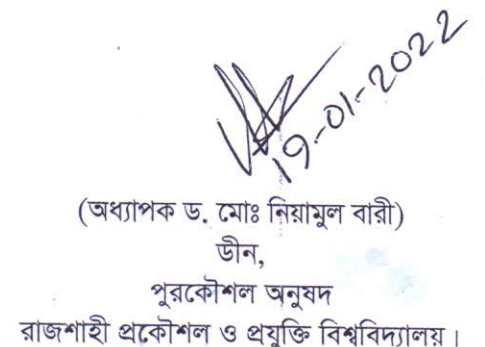 19-01-2022
(অধ্যাপক ড. মোঃ নিয়ামুল বারী)
ডীন,
পুরকৌশল অনুষদ
রাজশাহী প্রকৌশল ও প্রযুক্তি বিশ্ববিদ্যালয়।